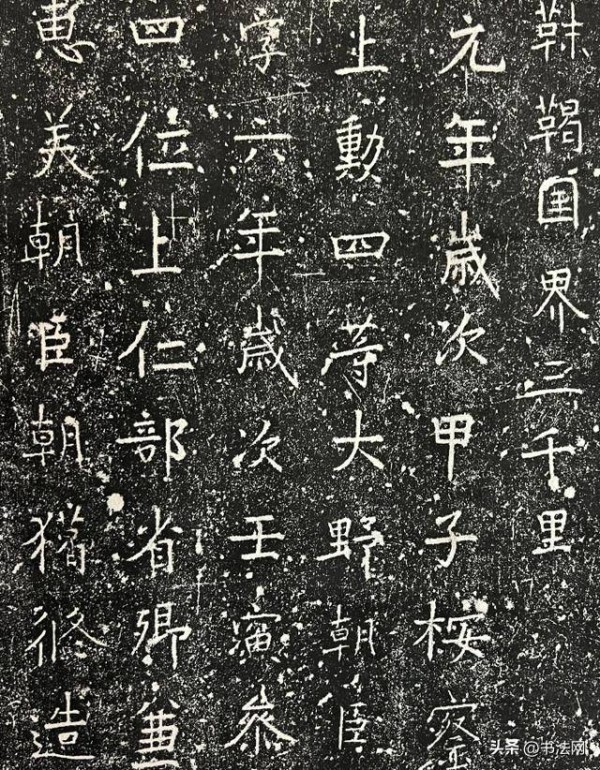 靺鞨國界三千里
元年歲次甲子桉察
上勳四等大野朝臣
字六年歲次壬寅參
四位上仁部省卿兼
惠美朝臣朝獦修造
头条 @书法网